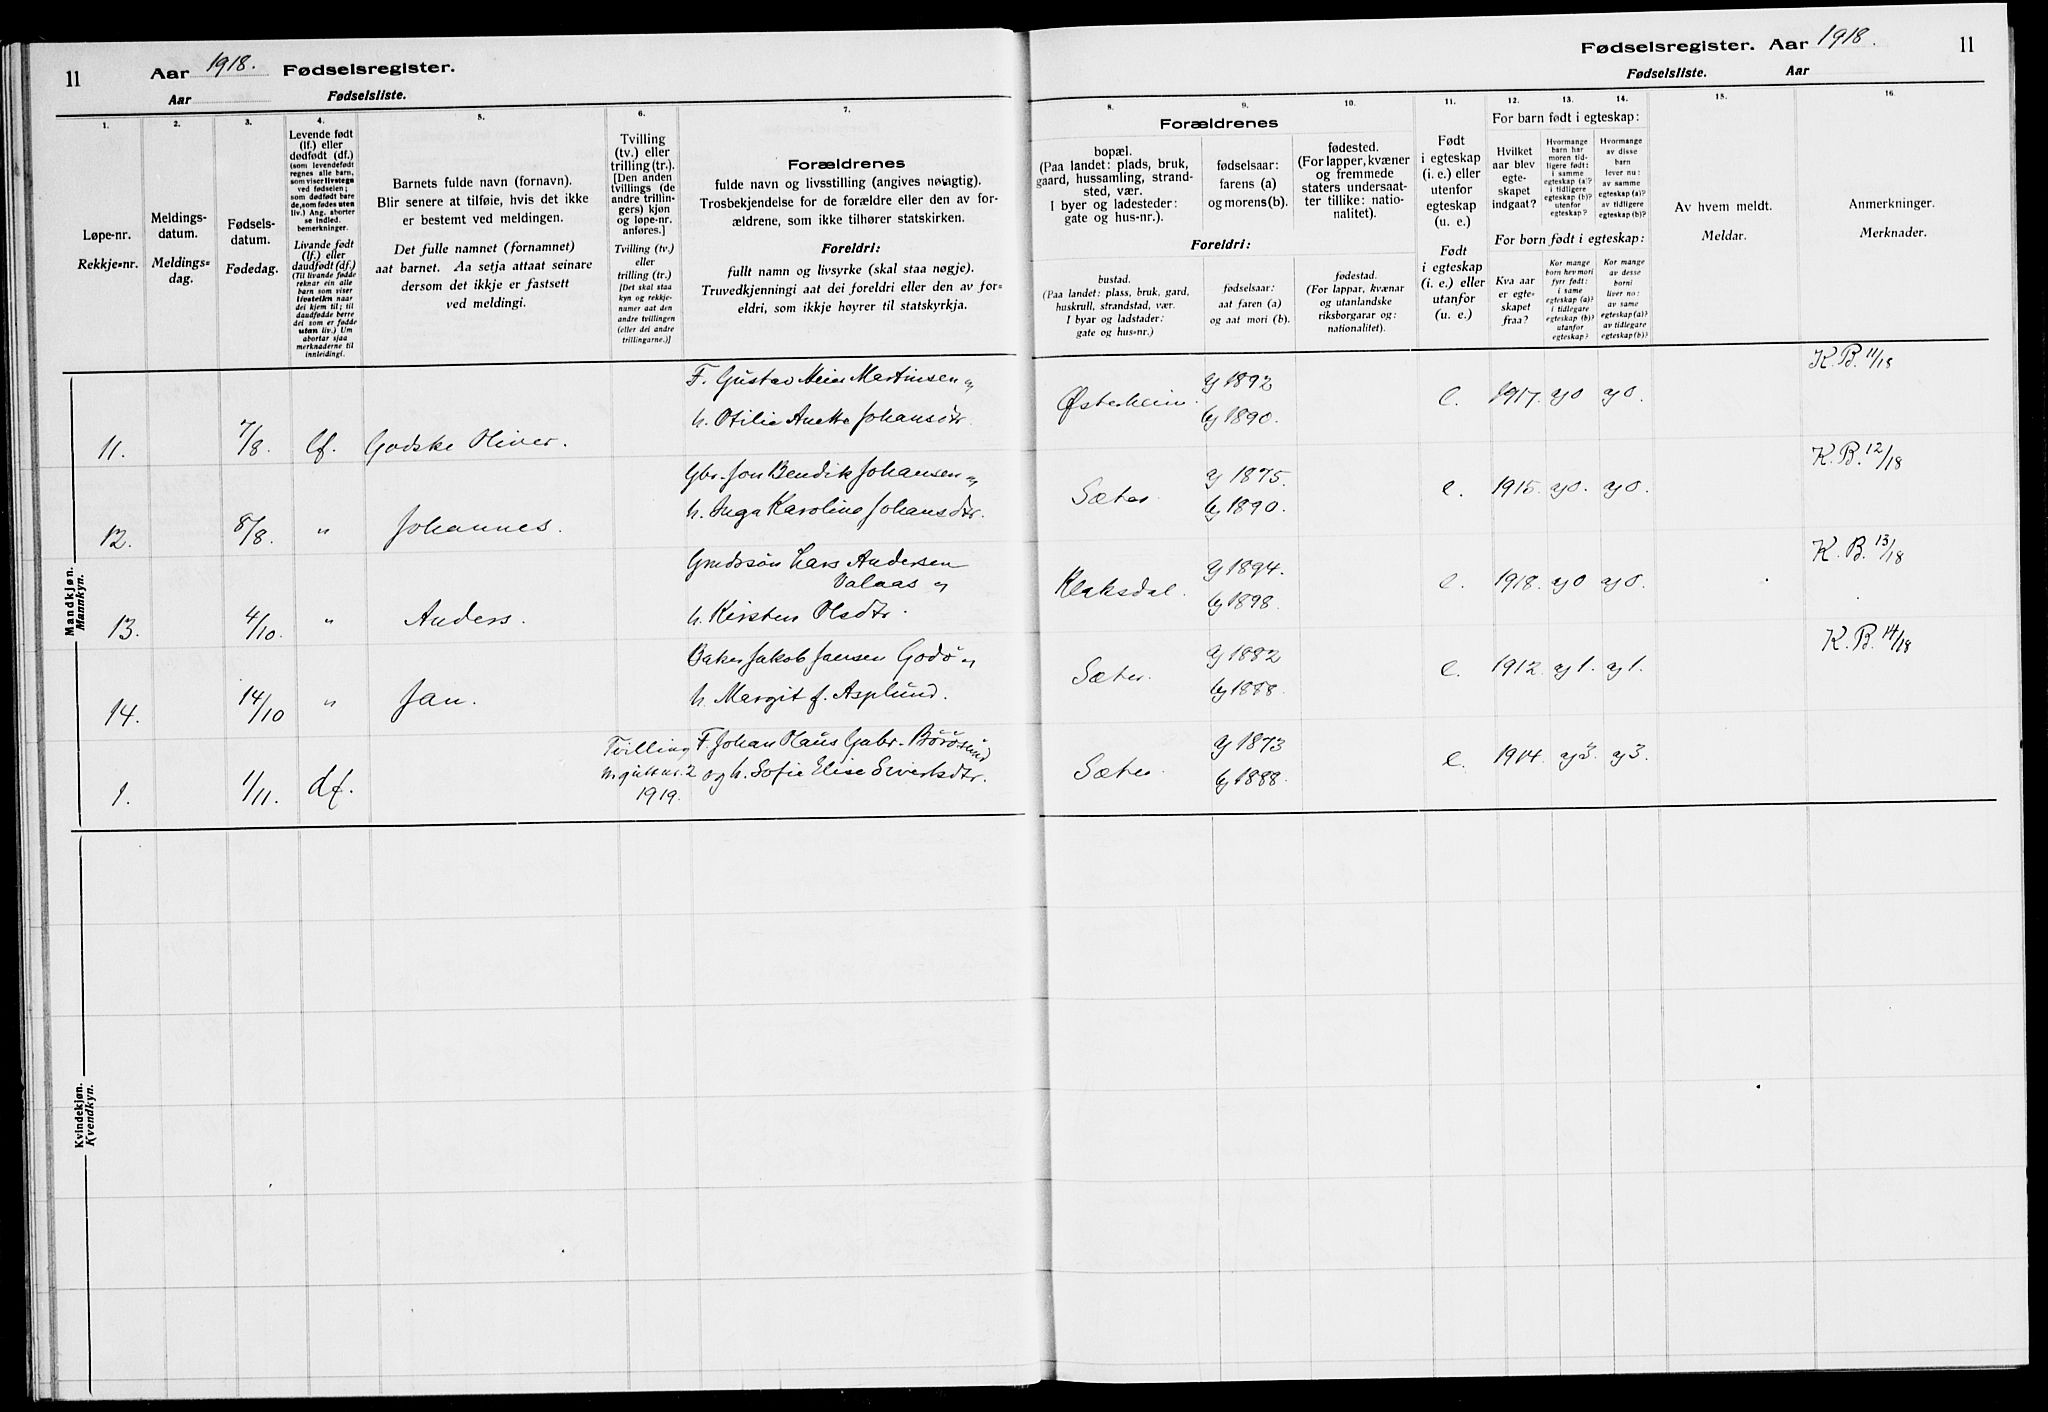 11
Aar 1918. Fødselsregister.
Aar Fødselsliste.
1.
Løpe-nr.
Rekkje-nr.
2.
Meldings-
datum.
Meldings-
dag.
3.
Fødsels-
datum.
Fødedag.
4.
Levende født
(lf.) eller
dødfødt (df.)
(som levendefødt
regnes alle barn,
som viser livstegn
ved fødselen;
som dødfødt bare
de, som fødes uten
liv.) Ang. aborter
se indled.
bemerkninger.
Livande født
(lf.) eller
daudfødt (df.)
(Til livande fødde
reknar ein alle
barn som viser
livsteikn naar
dei kjem til; til
daudfødde berre
dei som er fødde
utan liv.) Um
abortar sjaa
merknaderne til
innleidingi.
5.
Barnets fulde navn (fornavn).
Blir senere at tilføie, hvis det ikke
er bestemt ved meldingen.
Det fulle namnet (fornamnet)
aat barnet. Aa setja attaat seinare
dersom det ikkje er fastsett
ved meldingi.
6.
Tvilling
(tv.) eller
trilling (tr.).
[Den anden
tvillings (de
andre trillin-
gers) kjøn
og løpe-nr.
anføres.]
Tvilling (tv.)
eller
trilling (tr.)
[Det skal staa
kyn og rekkje-
numer aat den
andre tvillingen
(eller dei andre
trillingarne.)]
7.
Forældrenes
fulde navn og livsstilling (angives nøiagtig).
Trosbekjendelse for de forældre eller den av for-
ældrene, som ikke tilhører statskirken.
Foreldri:
fullt namn og livsyrke (skal staa nøgje).
Truvedkjenningi aat dei foreldri eller den av for-
eldri, som ikkje høyrer til statskyrkja.
Mandkjøn.
Mannkyn.
F. Gustav Meier Martinsen og
h. Otilie Anette Johansdtr.
11. 7/8. lf. Godske Oliver.
Gbr. Jon Bendik Johansen og
h. Inga Karoline Johansdtr.
12. 8/8. " Johannes.
Grndssøn Lars Andersen
Valaas og
h. Kirsten Olsdtr.
13. 4/10. " Anders.
Baker Jakob Jansen Godø og
h. Margit f. Asplund.
14. 14/10 " Jan.
Tvilling F. Johan Olaus Gabr. Börösund
m. gutt nr. 2 og h. Sofie Elise Sivertsdtr.
1919.
1. 1/11. df.
Kvindekjøn.
Kvendkyn.
Fødselsregister. Aar 1918. 11
Fødselsliste. Aar
8.
Forældrenes
bopæl.
(Paa landet: plads, bruk,
gaard, hussamling, strand-
sted, vær.
I byer og ladesteder:
gate og hus-nr.).
Foreldri:
bustad.
(Paa landet: plass, bruk, gard,
huskrull, strandstad, vær.
I byar og ladstader:
gate og hus-nr.)
9.
fødselsaar:
farens (a)
og morens (b).
fødselsaar:
aat faren (a)
og aat mori (b).
10.
fødested.
(For lapper, kvæner
og fremmede
staters undersaat-
ter tillike: natio-
nalitet).
fødestad.
(For lappar, kvænar
og utanlandske
riksborgarar og:
nationalitet).
11.
Født
i egteskap
(i. e.) eller
utenfor
egteskap
(u. e.)
Født
i egteskap
(i. e.) eller
utanfor
(u. e.)
For barn født i egteskap:
12.
Hvilket
aar blev
egte-
skapet
indgaat?
13.
Hvormange
barn har
moren tid-
ligere født:
i samme
egteskap (a)?
i tidligere
egteskap (b)?
utenfor
egteskap?
14.
Hvormange
av disse
barn
lever nu:
av samme
egteskap (a)?
av tidligere
egteskap (b)?
For born født i egteskap:
Kva aar
er egte-
skapet
fraa?
Kor mange
born hev mori
fyrr født:
i same
egteskap (a)?
i tidlegare
egteskap (b)?
utanfor
egteskap?
Kor mange
av desse
borni
liver no:
av same
egteskap (a)?
av tidlegare
egteskap (b)?
15.
Av hvem meldt.
Meldar.
16.
Anmerkninger.
Merknader.
Østerheim. a) 1892 e. 1917. a) 0 a) 0. K. B. 11/18
b) 1890.
Sæter. a) 1875. e. 1915. a) 0. a) 0. K. B. 12/18
b) 1890.
Klaksdal. a) 1894. e. 1918. a) 0 a) 0. K. B. 13/18
b) 1898.
Sæter. a) 1882 e. 1912. a) 1. a) 1. K. B. 14/18
b) 1888.
Sæter. a) 1873 e. 1914. a) 3. a) 3.
b) 1888.